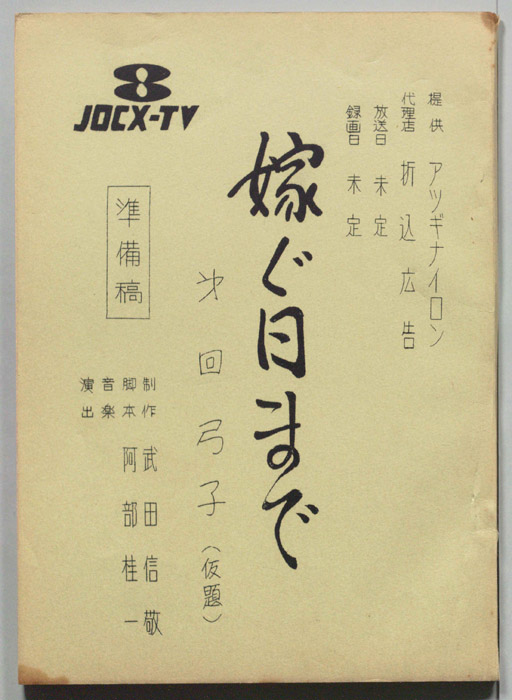 8
JOCX-TV
提供 アツギナイロン
代理店 折込広告
放送日 未定
録画日 未定
嫁ぐ日まで
才 回 弓子(仮題)
準備稿
制作 武田信敬
脚本 阿部桂一
音楽
演出